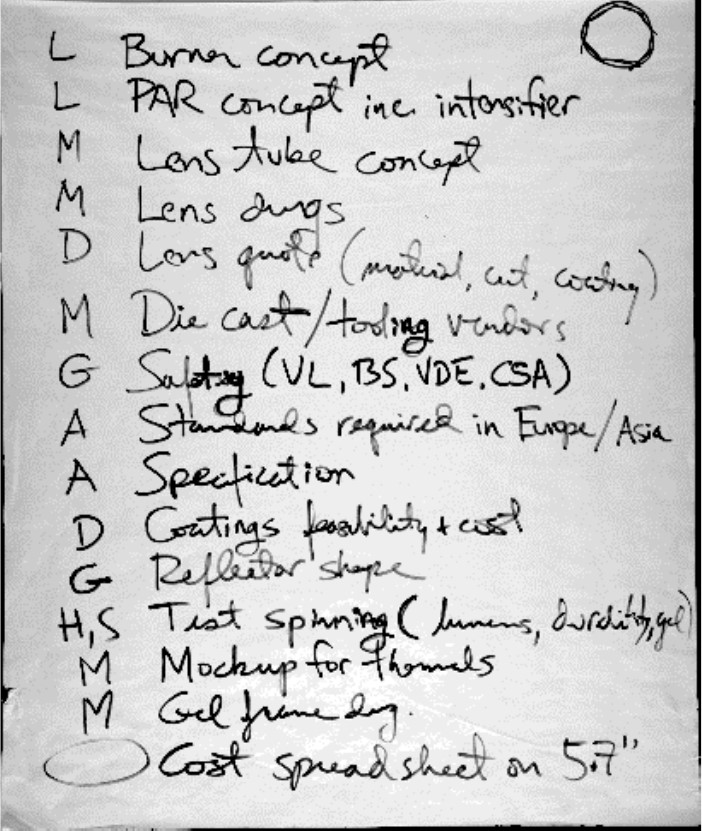 L Burner concept
L PAR concept inc. intensifier
M Lens tube concept
M Lens dwgs
D Lens quote (material, cut, coating)
M Die cast/tooling vendors
G Safety (VL, BS, VDE, CSA)
A Standards required in Europe/Asia
A Specification
D Coatings feasibility + cost
G Reflector shape
H,S Test spinning (lumens, durability, gel)
M Mockup for thermals
M Gel frame dwg.
Cost spreadsheet on 5.7"